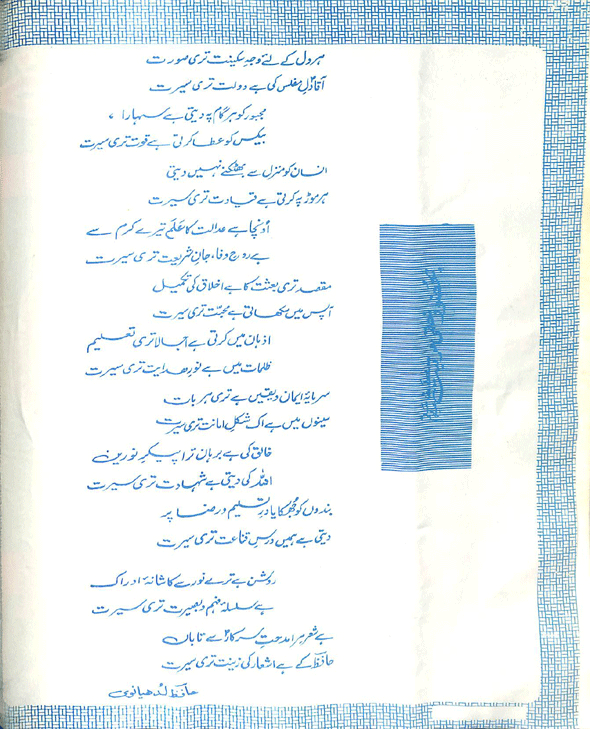 ہر دل کے لئے وجہِ سکینت تری صورت
آقا دلِ مفلس کی ہے دولت تری سیرت
مجبور کو ہر گام پہ دیتی ہے سہارا
بیکس کو عطا کرتی ہے قوت تری سیرت
انسان کو منزل سے بھٹکنے نہیں دیتی
ہر موڑ پہ کرتی ہے قیادت تری سیرت
اُونچا ہے عدالت کا عَلَم تیرے کرم سے
ہے روحِ وفا، جانِ شریعت تری سیرت
مقصد تری بعثت کا ہے اخلاق کی تکمیل
آپس میں سکھاتی ہے محبّت تری سیرت
اذہان میں کرتی ہے اُجالا تری تعلیم
ظلمات میں ہے نورِ ھدایت تری سیرت
سرمایۂ ایمان و یقیں ہے تری ہر بات
سینوں میں ہے اک شکلِ امانت تری سیرت
خالق کی ہے برہان ترا پیکرِ نوریں
اللہ کی دیتی ہے شہادت تری سیرت
بندوں کو جُھکایا درِ تسلیم و رضا پر
دیتی ہے ہمیں درسِ قناعت تری سیرت
روشن ہے ترے نور سے کاشانۂ ادراک
ہے سلسلۂ فہم و بصیرت تری سیرت
ہے شعر مرا مدحتِ سرکارؐ سے تاباں
حافظؔ کے ہے اشعار کی زینت تری سیرت
حافظ لُدھیانوی